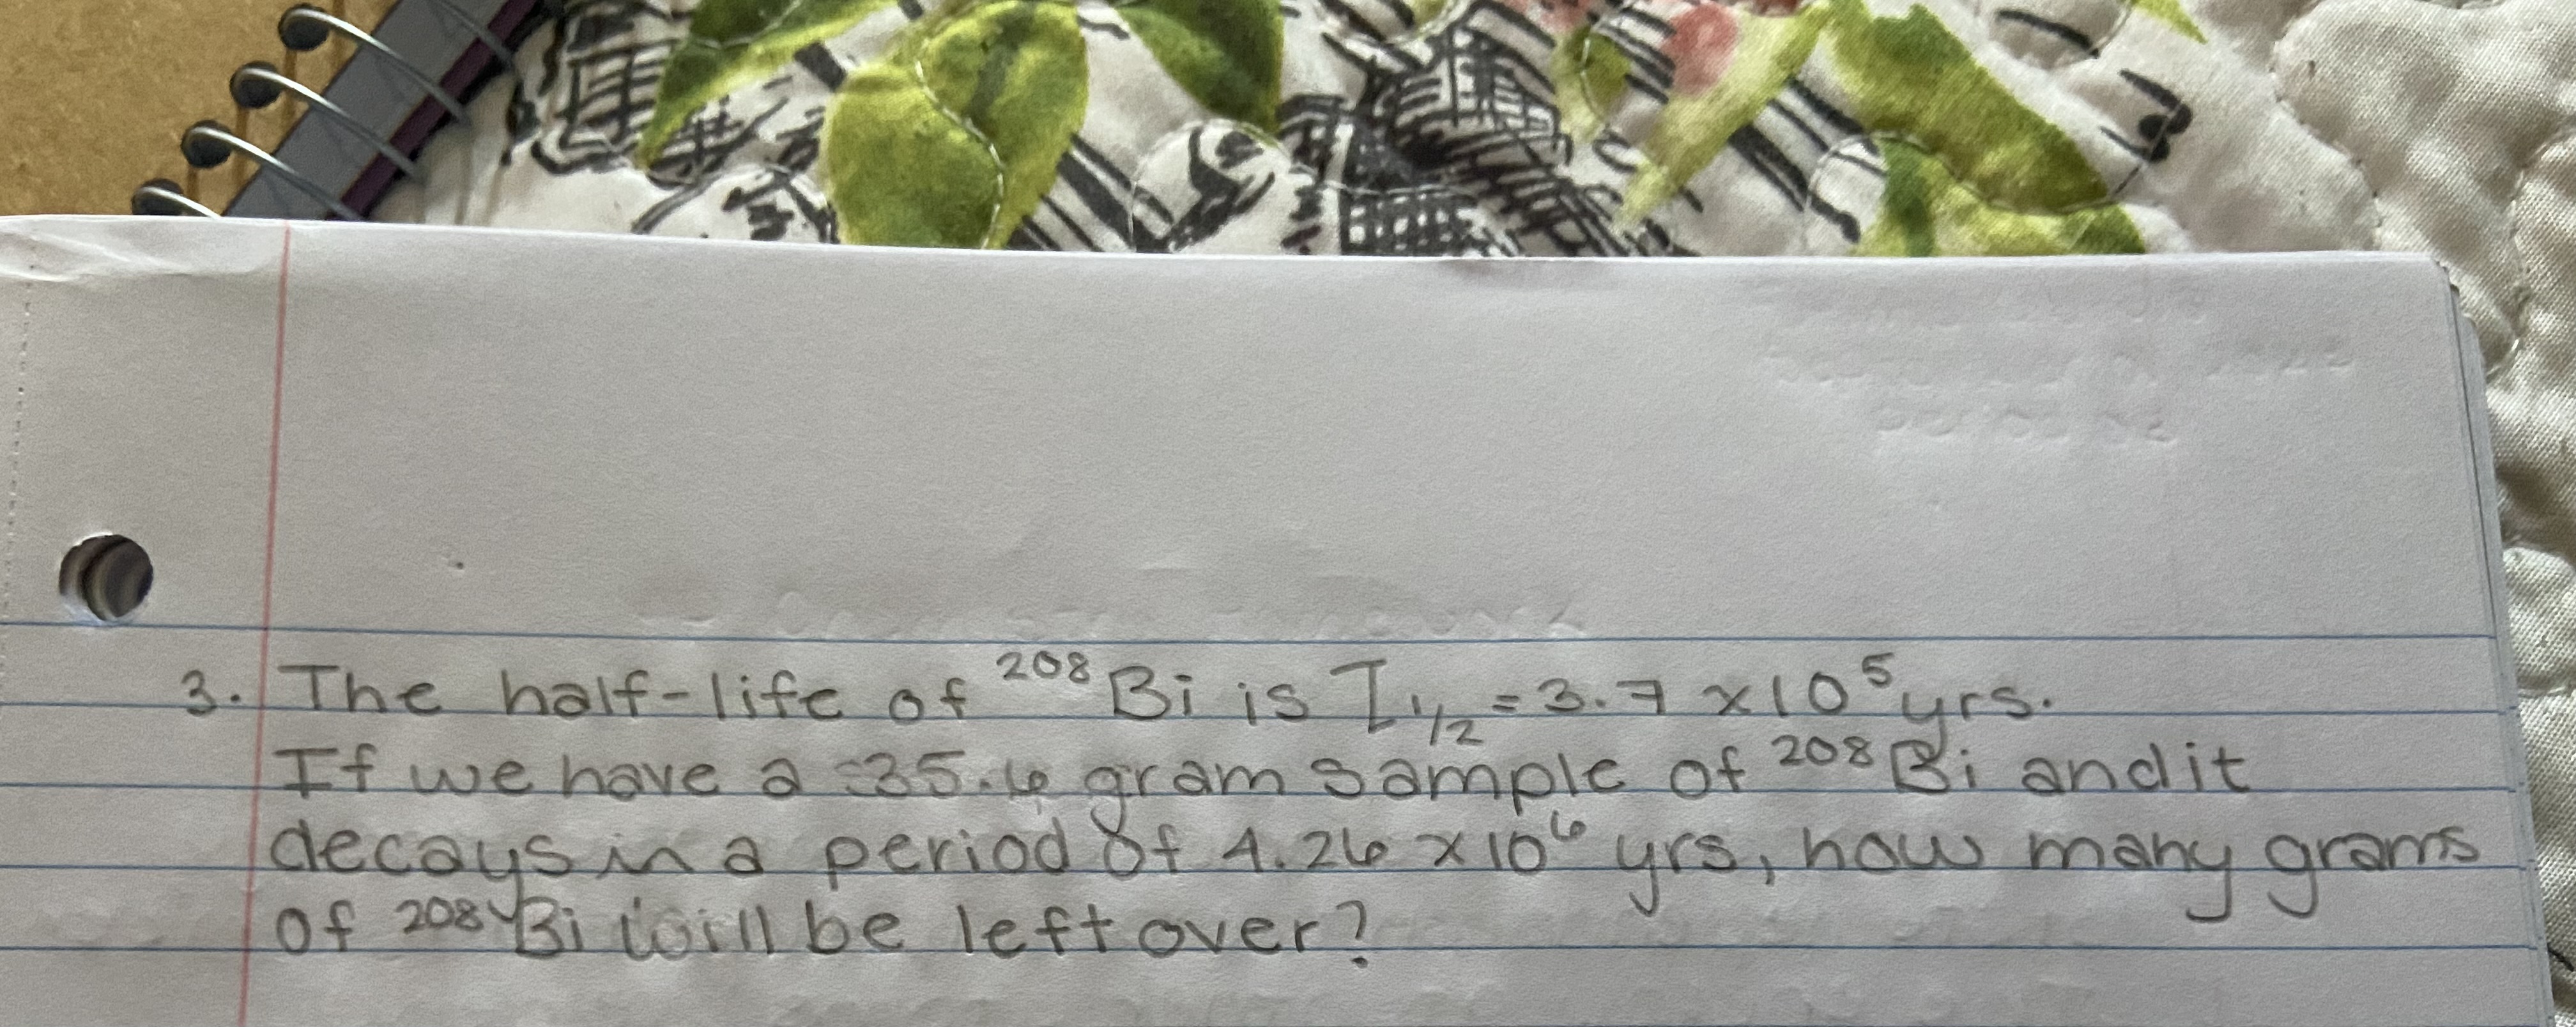 3. The half-life of ²⁰⁸Bi is T₁/₂ = 3.7 x10⁵ yrs.
If we have a 35.6 gram sample of ²⁰⁸Bi and it
decays in a period of 4.26 x10⁶ yrs, how many grams
of ²⁰⁸Bi will be left over?